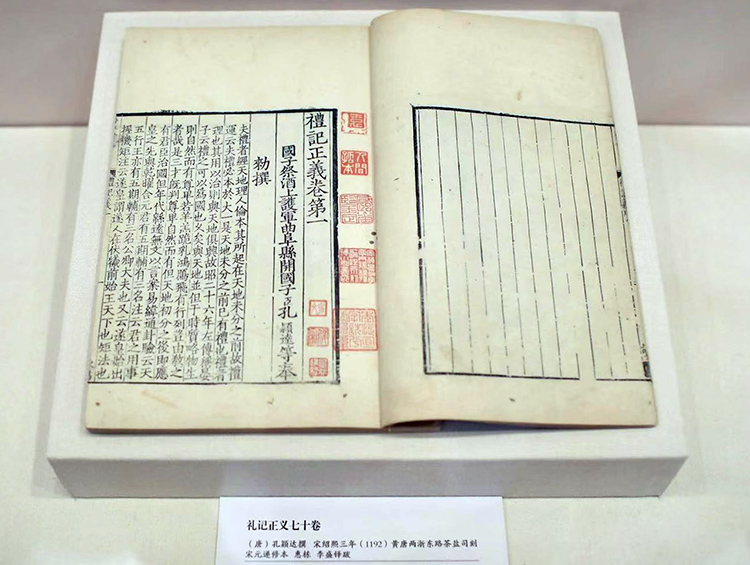 禮記正義卷第一
國子祭酒上護軍曲阜縣開國子臣孔穎達等奉
勑撰
夫禮者經天地理人倫本其所起在天地未分之前故禮
運云夫禮必本於大一是天地未分之前已有禮也禮者
理也其用以治則與天地俱興故昭二十六年左傳稱晏
子云禮之可以爲國也久矣與天地並但于時質略物生
則自然而有尊卑若羊羔跪乳鴻鴈飛有行列豈由教之
者哉是三才旣判尊卑自然而有但天地初分之後即應
有君臣治國但年代緜遠無文以言案易緯通卦驗云天
皇之先與乾曜合元君有五期輔有三名注云君之用事
五行王亦有五期輔有三名公卿大夫也又云遂皇始出
握機矩注云遂皇謂遂人在伏犧前始王天下也矩法也
人間孤本
礼记正义七十卷
（唐）孔颖达撰 宋绍熙三年（1192）黄唐两浙东路茶盐司刻
宋元递修本 惠栋 李盛铎跋